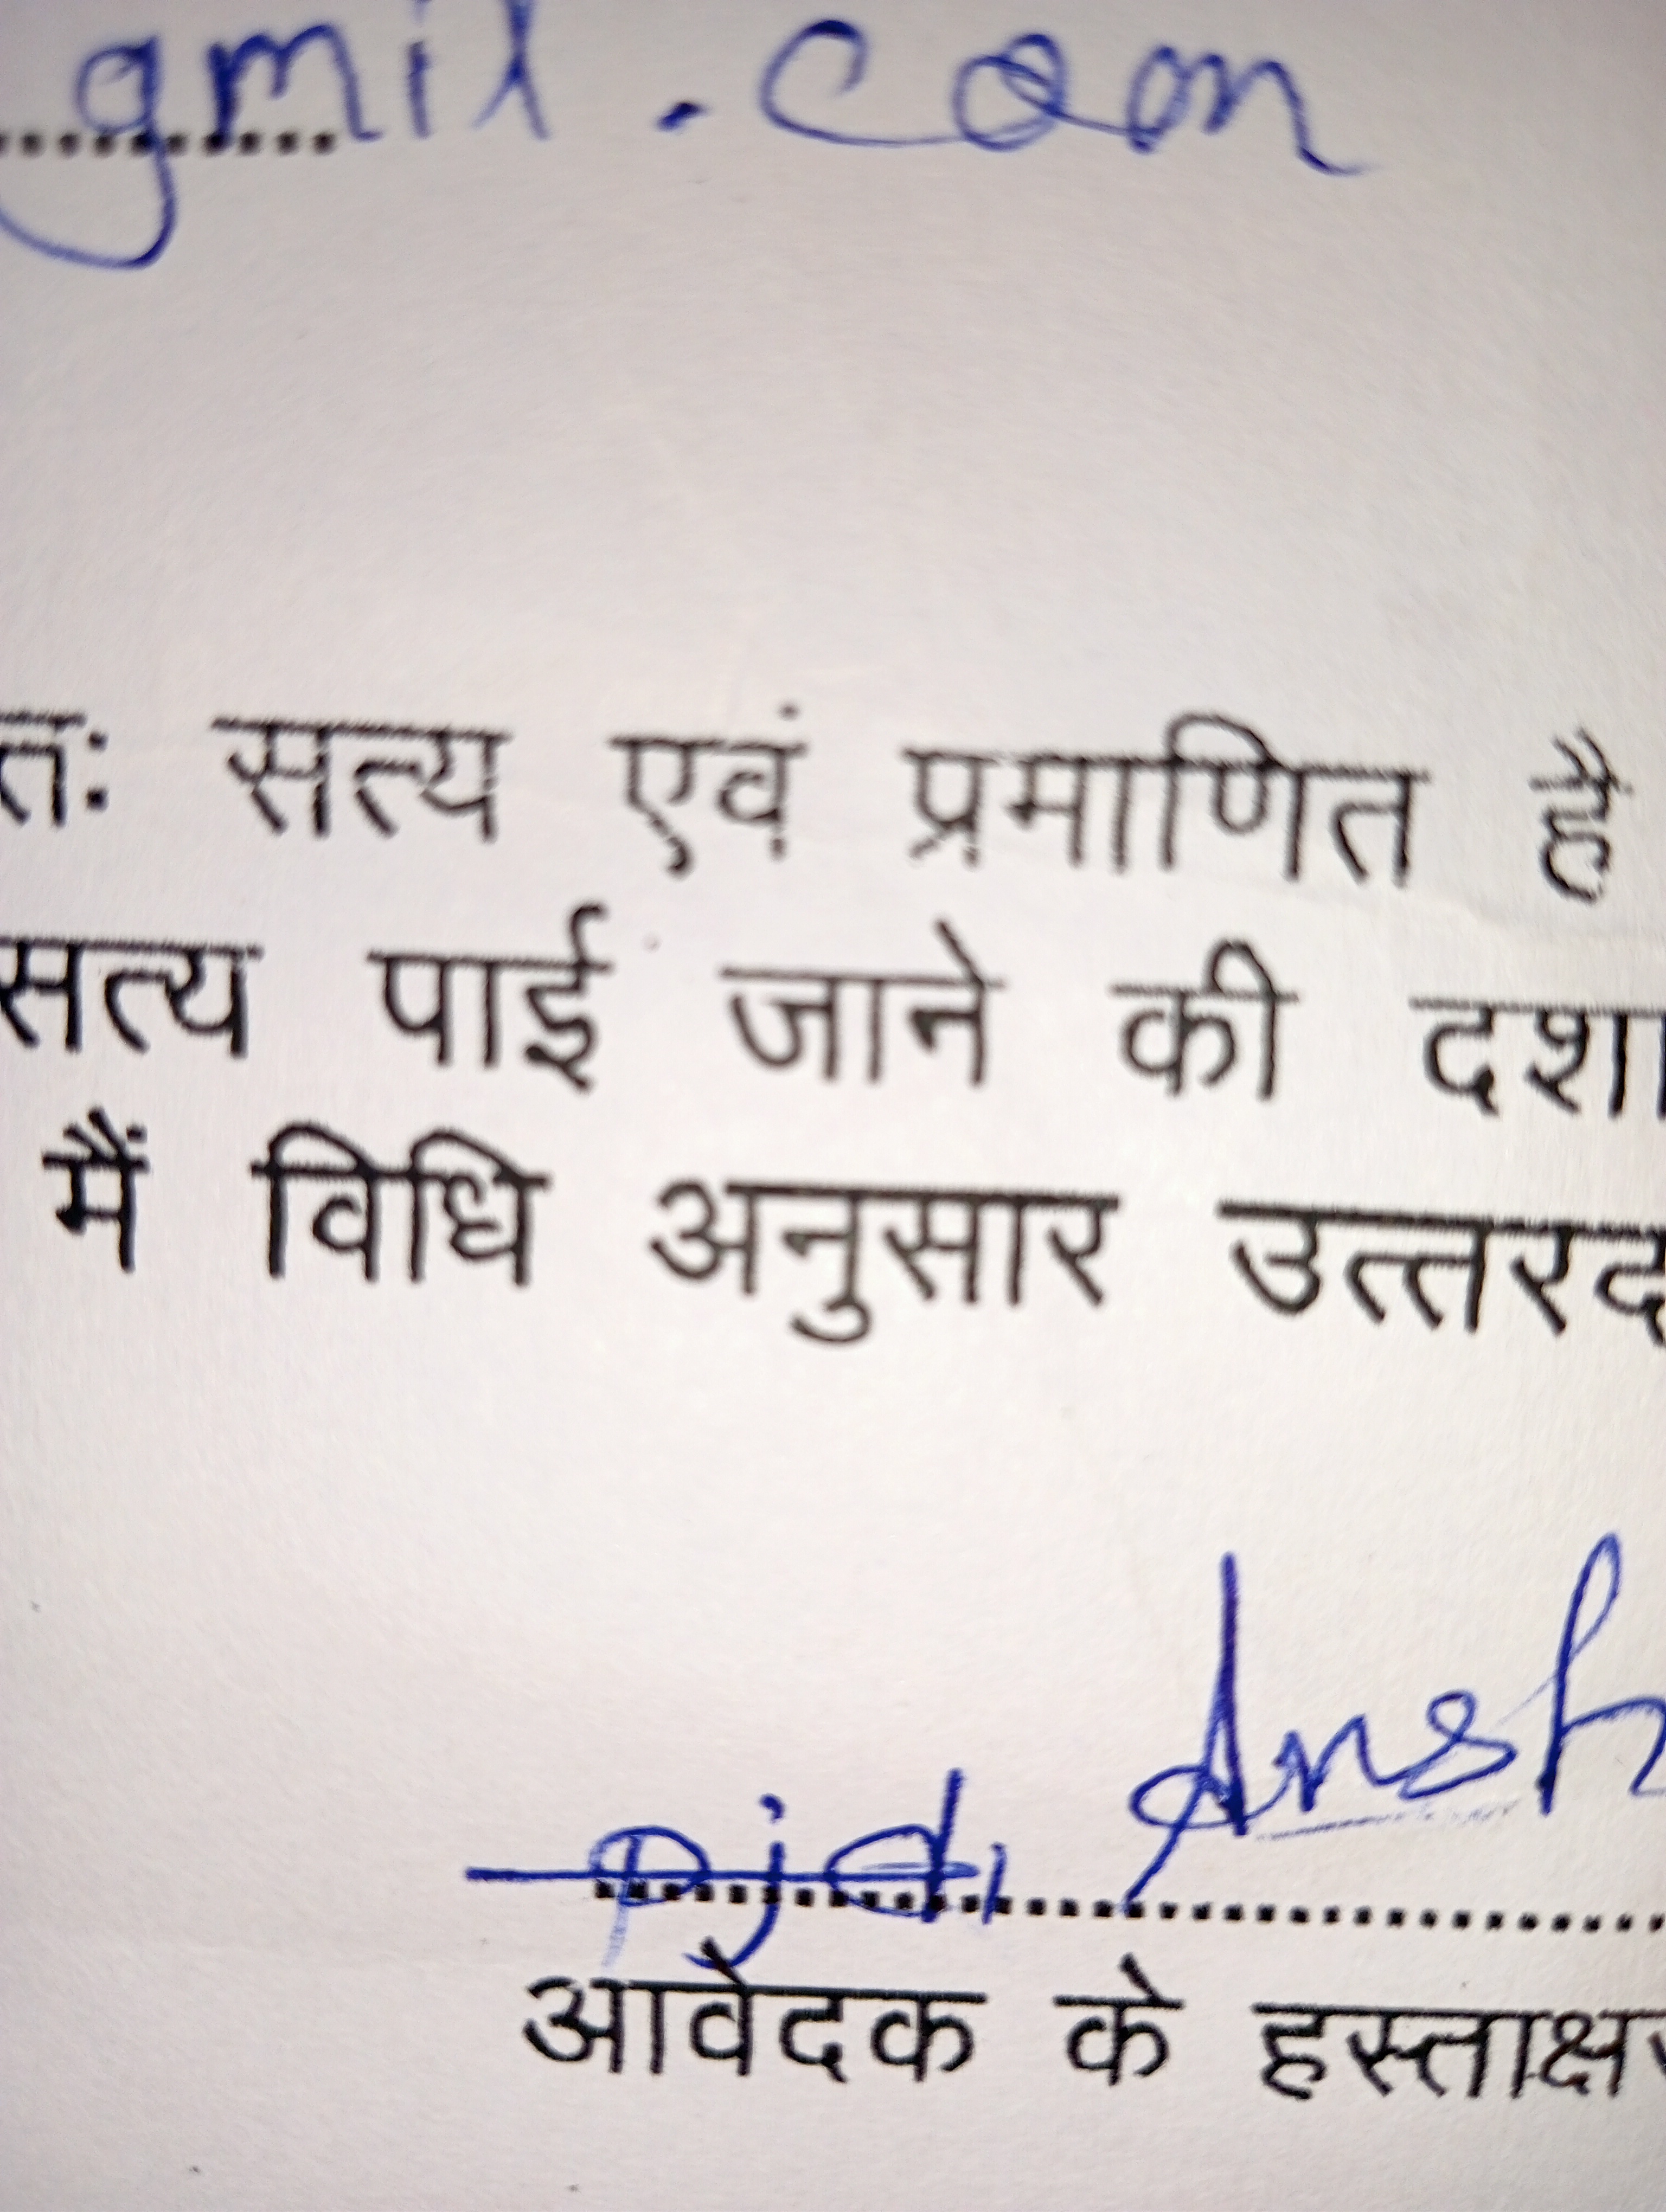 gmil.com
तः सत्य एवं प्रमाणित है
सत्य पाई जाने की दशा
मैं विधि अनुसार उत्तरद
Ansh
आवेदक के हस्ताक्षर